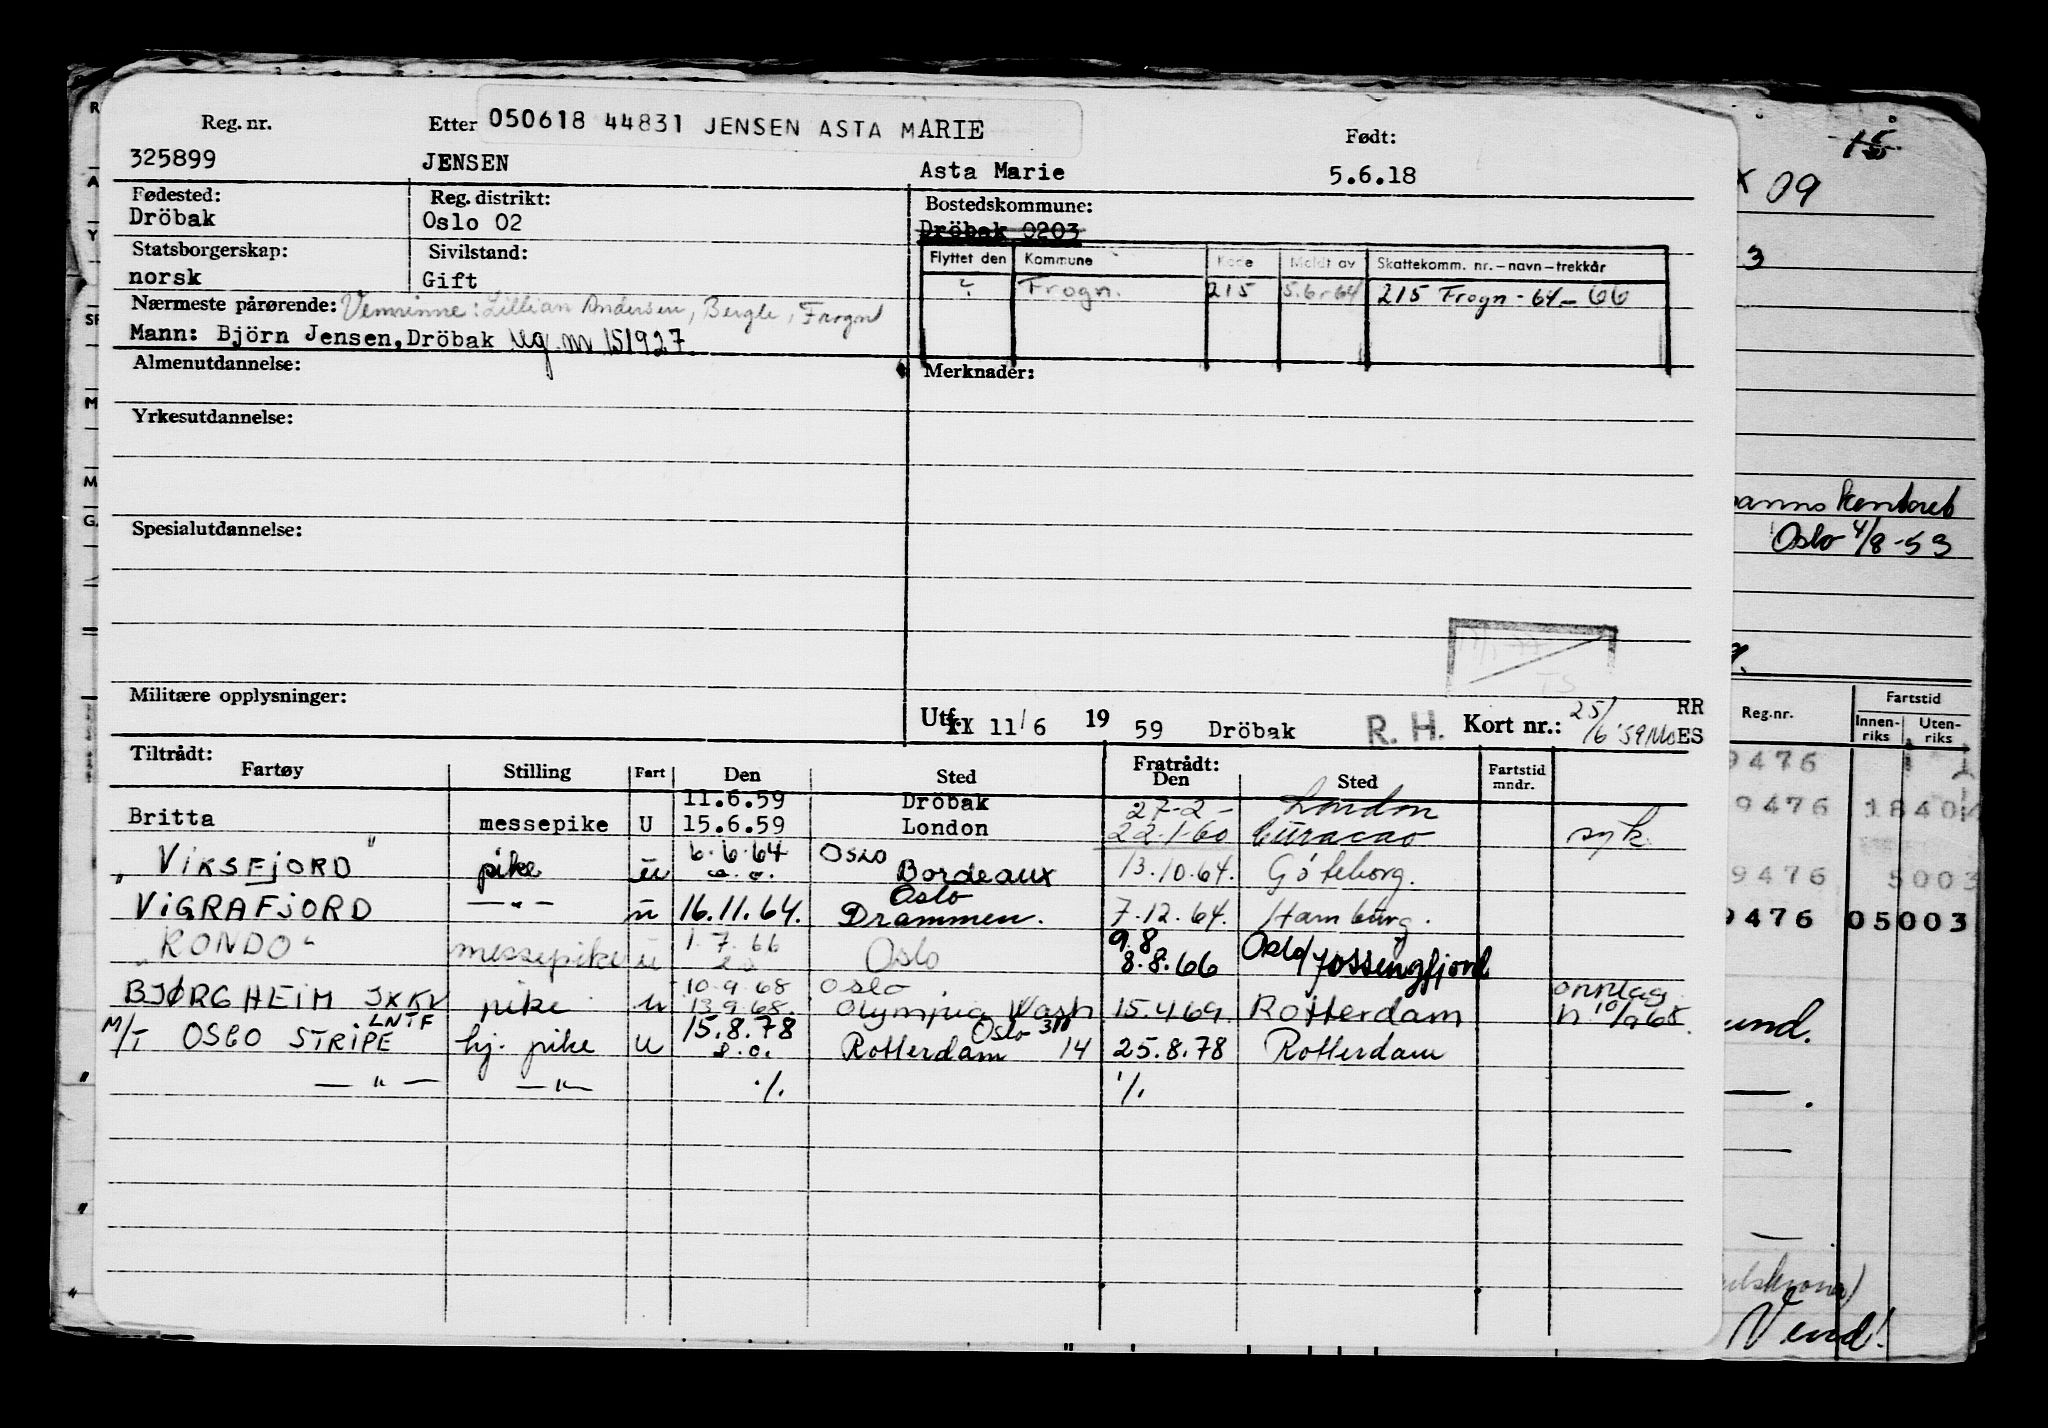 Reg. nr. Etter 050618 44831 JENSEN ASTA MARIE Født:
325899 JENSEN Asta Marie 5.6.18
Fødested: Reg. distrikt: Bostedskommune:
Dröbak Oslo 02 Dröbak 0203
Statsborgerskap: Sivilstand: Flyttet den Kommune Kode Meldt av Skattekomm. nr.-navn-trekkår
norsk Gift ? Frogn. 215 5.6-64 215 Frogn - 64 - 66
Nærmeste pårørende: Venninne: Lillian Andersen, Bergle, Frogn
Mann: Björn Jensen, Dröbak reg. nr 151927
Almenutdannelse: Merknader:
Yrkesutdannelse:
Spesialutdannelse:
TS
Militære opplysninger:
Utf. 11/6 19 59 Dröbak R. H. Kort nr.: 25/6 '59 RR ES
Tiltrådt: Fratrådt:
Fartøy Stilling Fart Den Sted Den Sted Fartstid mndr.
11.6.59 Dröbak 27-2- London
Britta messepike U 15.6.59 London 22.1.60 Curacao syk.
6.6.64 Oslo
"VIKSFJORD" pike u Bordeaux 13.10.64. Göteborg.
Oslo
VIGRAFJORD —"— u 16.11.64. Drammen. 7.12.64. Hamburg.
1.7.66 9.8
"RONDO" messepike u Oslo 8.8.66 Oslo/Jossingfjord
10.9.68 Oslo
BJØRGHEIM JXKV pike u 13.9.68. Olympia Wash 15.4.69. Rotterdam 10/9 68.
LNTF 15.8.78 Oslo
M/T OSLO STRIPE hj. pike U s.d. Rotterdam 14 25.8.78 Rotterdam
—"— —"— ./. ./.
09
3
Oslo 4/8-53
Reg.nr. Fartstid
Innenriks Utenriks
9476
9476 1840
9476 5003
9476 05003
Vend!